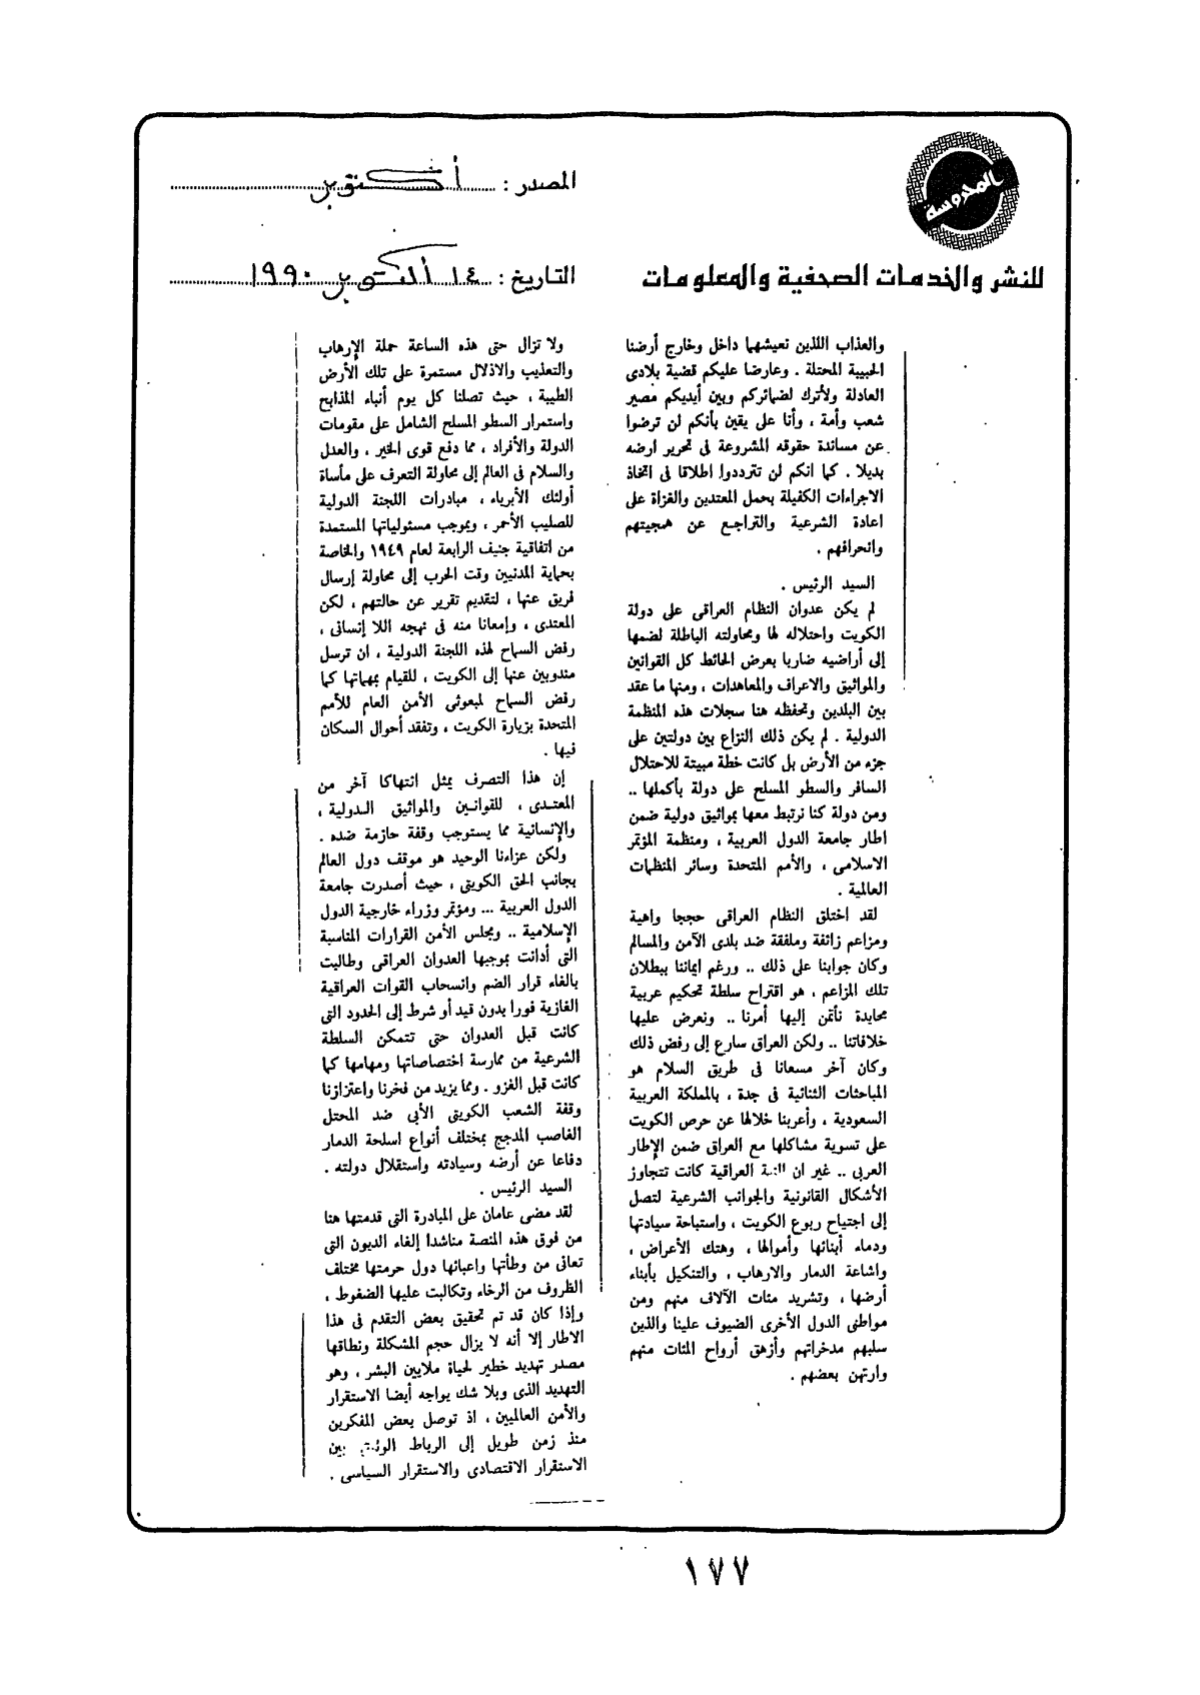 المحروسة
للنشر والخدمات الصحفية والمعلومات
المصدر : أكتوبر
التاريخ : ١٤ أكتوبر ١٩٩٠
والعذاب اللذين نعيشهما داخل وخارج أرضنا
الحبيبة المحتلة . وعارضا عليكم قضية بلادى
العادلة ولأترك لضمائركم وبين أيديكم مصير
شعب وأمة ، وأنا على يقين بأنكم لن ترضوا
عن مساندة حقوقه المشروعة فى تحرير ارضه
بديلا . كما انكم لن تترددوا اطلاقا فى اتخاذ
الاجراءات الكفيلة بحمل المعتدين والغزاة على
اعادة الشرعية والتراجع عن همجيتهم
وانحرافهم .
السيد الرئيس .
لم يكن عدوان النظام العراقى على دولة
الكويت واحتلاله لها ومحاولته الباطلة لضمها
إلى أراضيه ضاربا بعرض الحائط كل القوانين
والمواثيق والاعراف والمعاهدات ، ومنها ما عقد
بين البلدين وتحفظه هنا سجلات هذه المنظمة
الدولية . لم يكن ذلك النزاع بين دولتين على
جزء من الأرض بل كانت خطة مبيتة للاحتلال
السافر والسطو المسلح على دولة بأكملها ..
ومن دولة كنا نرتبط معها بمواثيق دولية ضمن
اطار جامعة الدول العربية ، ومنظمة المؤتمر
الاسلامى ، والأمم المتحدة وسائر المنظمات
العالمية .
لقد اختلق النظام العراقى حججا واهية
ومزاعم زائفة وملفقة ضد بلدى الآمن والمسالم
وكان جوابنا على ذلك .. ورغم ايماننا ببطلان
تلك المزاعم ، هو اقتراح سلطة تحكيم عربية
محايدة نأتمن إليها أمرنا .. ونعرض عليها
خلافاتنا .. ولكن العراق سارع إلى رفض ذلك
وكان آخر مسعانا فى طريق السلام هو
المباحثات الثنائية فى جدة ، بالمملكة العربية
السعودية ، وأعربنا خلالها عن حرص الكويت
على تسوية مشاكلها مع العراق ضمن الإطار
العربى .. غير ان العراقية كانت تتجاوز
الأشكال القانونية والجوانب الشرعية لتصل
إلى اجتياح ربوع الكويت ، واستباحة سيادتها
ودماء أبنائها وأموالها ، وهتك الأعراض ،
واشاعة الدمار والارهاب ، والتنكيل بأبناء
أرضها ، وتشريد مئات الآلاف منهم ومن
مواطنى الدول الأخرى الضيوف علينا والذين
سلبهم مدخراتهم وأزهق أرواح المئات منهم
وارتهن بعضهم .
ولا تزال حتى هذه الساعة حملة الإرهاب
والتعذيب والاذلال مستمرة على تلك الأرض
الطيبة ، حيث تصلنا كل يوم أنباء المذابح
واستمرار السطو المسلح الشامل على مقومات
الدولة والأفراد ، مما دفع قوى الخير ، والعدل
والسلام فى العالم إلى محاولة التعرف على مأساة
أولئك الأبرياء ، مبادرات اللجنة الدولية
للصليب الأحمر ، وبموجب مسئولياتها المستمدة
من اتفاقية جنيف الرابعة لعام ١٩٤٩ والخاصة
بحماية المدنيين وقت الحرب إلى محاولة إرسال
فريق عنها ، لتقديم تقرير عن حالتهم ، لكن
المعتدى ، وإمعانا منه فى نهجه اللا إنسانى ،
رفض السماح لهذه اللجنة الدولية ، ان ترسل
مندوبين عنها إلى الكويت ، للقيام بمهماتها كما
رفض السماح لمبعوثى الأمن العام للأمم
المتحدة بزيارة الكويت ، وتفقد أحوال السكان
فيها .
إن هذا التصرف يمثل انتهاكا آخر من
المعتدى ، للقوانين والمواثيق الدولية ،
والإنسانية مما يستوجب وقفة حازمة ضده .
ولكن عزاءنا الوحيد هو موقف دول العالم
بجانب الحق الكويتى ، حيث أصدرت جامعة
الدول العربية ... ومؤتمر وزراء خارجية الدول
الإسلامية .. ومجلس الأمن القرارات المناسبة
التى أدانت بموجبها العدوان العراقى وطالبت
بالغاء قرار الضم وانسحاب القوات العراقية
الغازية فورا بدون قيد أو شرط إلى الحدود التى
كانت قبل العدوان حتى تتمكن السلطة
الشرعية من ممارسة اختصاصاتها ومهامها كما
كانت قبل الغزو . ومما يزيد من فخرنا واعتزازنا
وقفة الشعب الكويتى الأبى ضد المحتل
الغاصب المدجج بمختلف أنواع اسلحة الدمار
دفاعا عن أرضه وسيادته واستقلال دولته .
السيد الرئيس .
لقد مضى عامان على المبادرة التى قدمتها هنا
من فوق هذه المنصة مناشدا إلغاء الديون التى
تعانى من وطأتها واعبائها دول حرمتها مختلف
الظروف من الرخاء وتكالبت عليها الضغوط ،
وإذا كان قد تم تحقيق بعض التقدم فى هذا
الاطار إلا أنه لا يزال حجم المشكلة ونطاقها
مصدر تهديد خطير لحياة ملايين البشر ، وهو
التهديد الذى وبلا شك يواجه أيضا الاستقرار
والأمن العالميين ، اذ توصل بعض المفكرين
منذ زمن طويل إلى الرباط الوثيق بين
الاستقرار الاقتصادى والاستقرار السياسى .
١٧٧